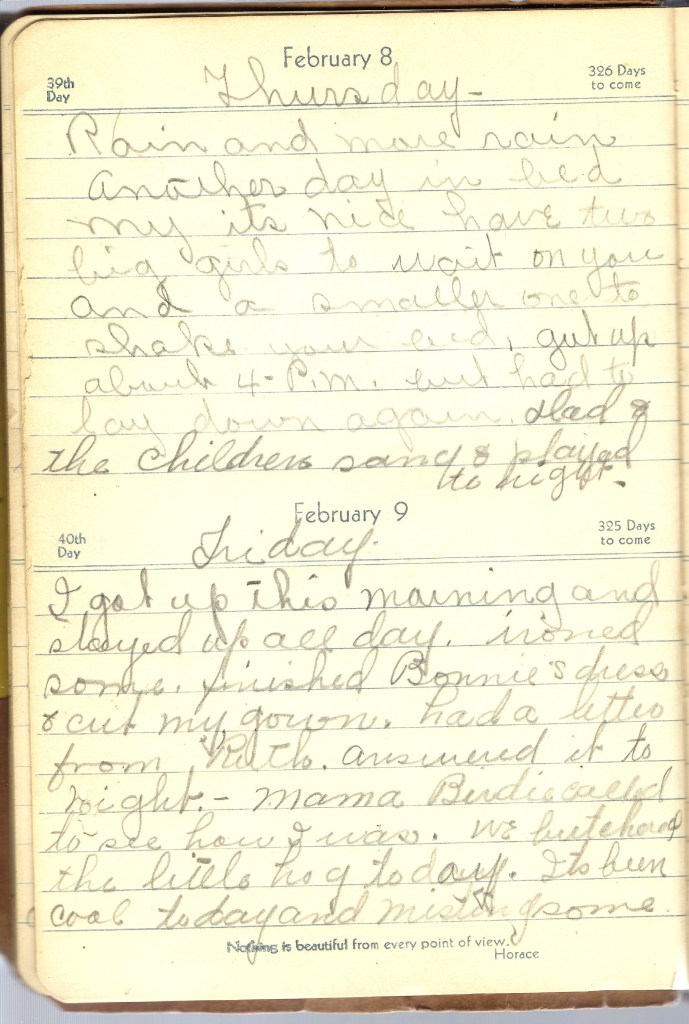 February 8
39th Day
326 Days to come
Thursday -
Rain and more rain
Another day in bed
my its nice have two
big girls to wait on you
and a smaller one to
shake your bed, got up
about 4-P.M. but had to
lay down again. Dad &
the children sang & played
to night.
February 9
40th Day
325 Days to come
Friday.
I got up this morning and
stayed up all day. ironed
some. finished Bonnie's dress
& cut my gown. had a letter
from Ruth. answered it to
night. - Mama Birdie called
to see how I was. We butchered
the little hog today. Its been
cool today and misting some
Nothing is beautiful from every point of view.
Horace